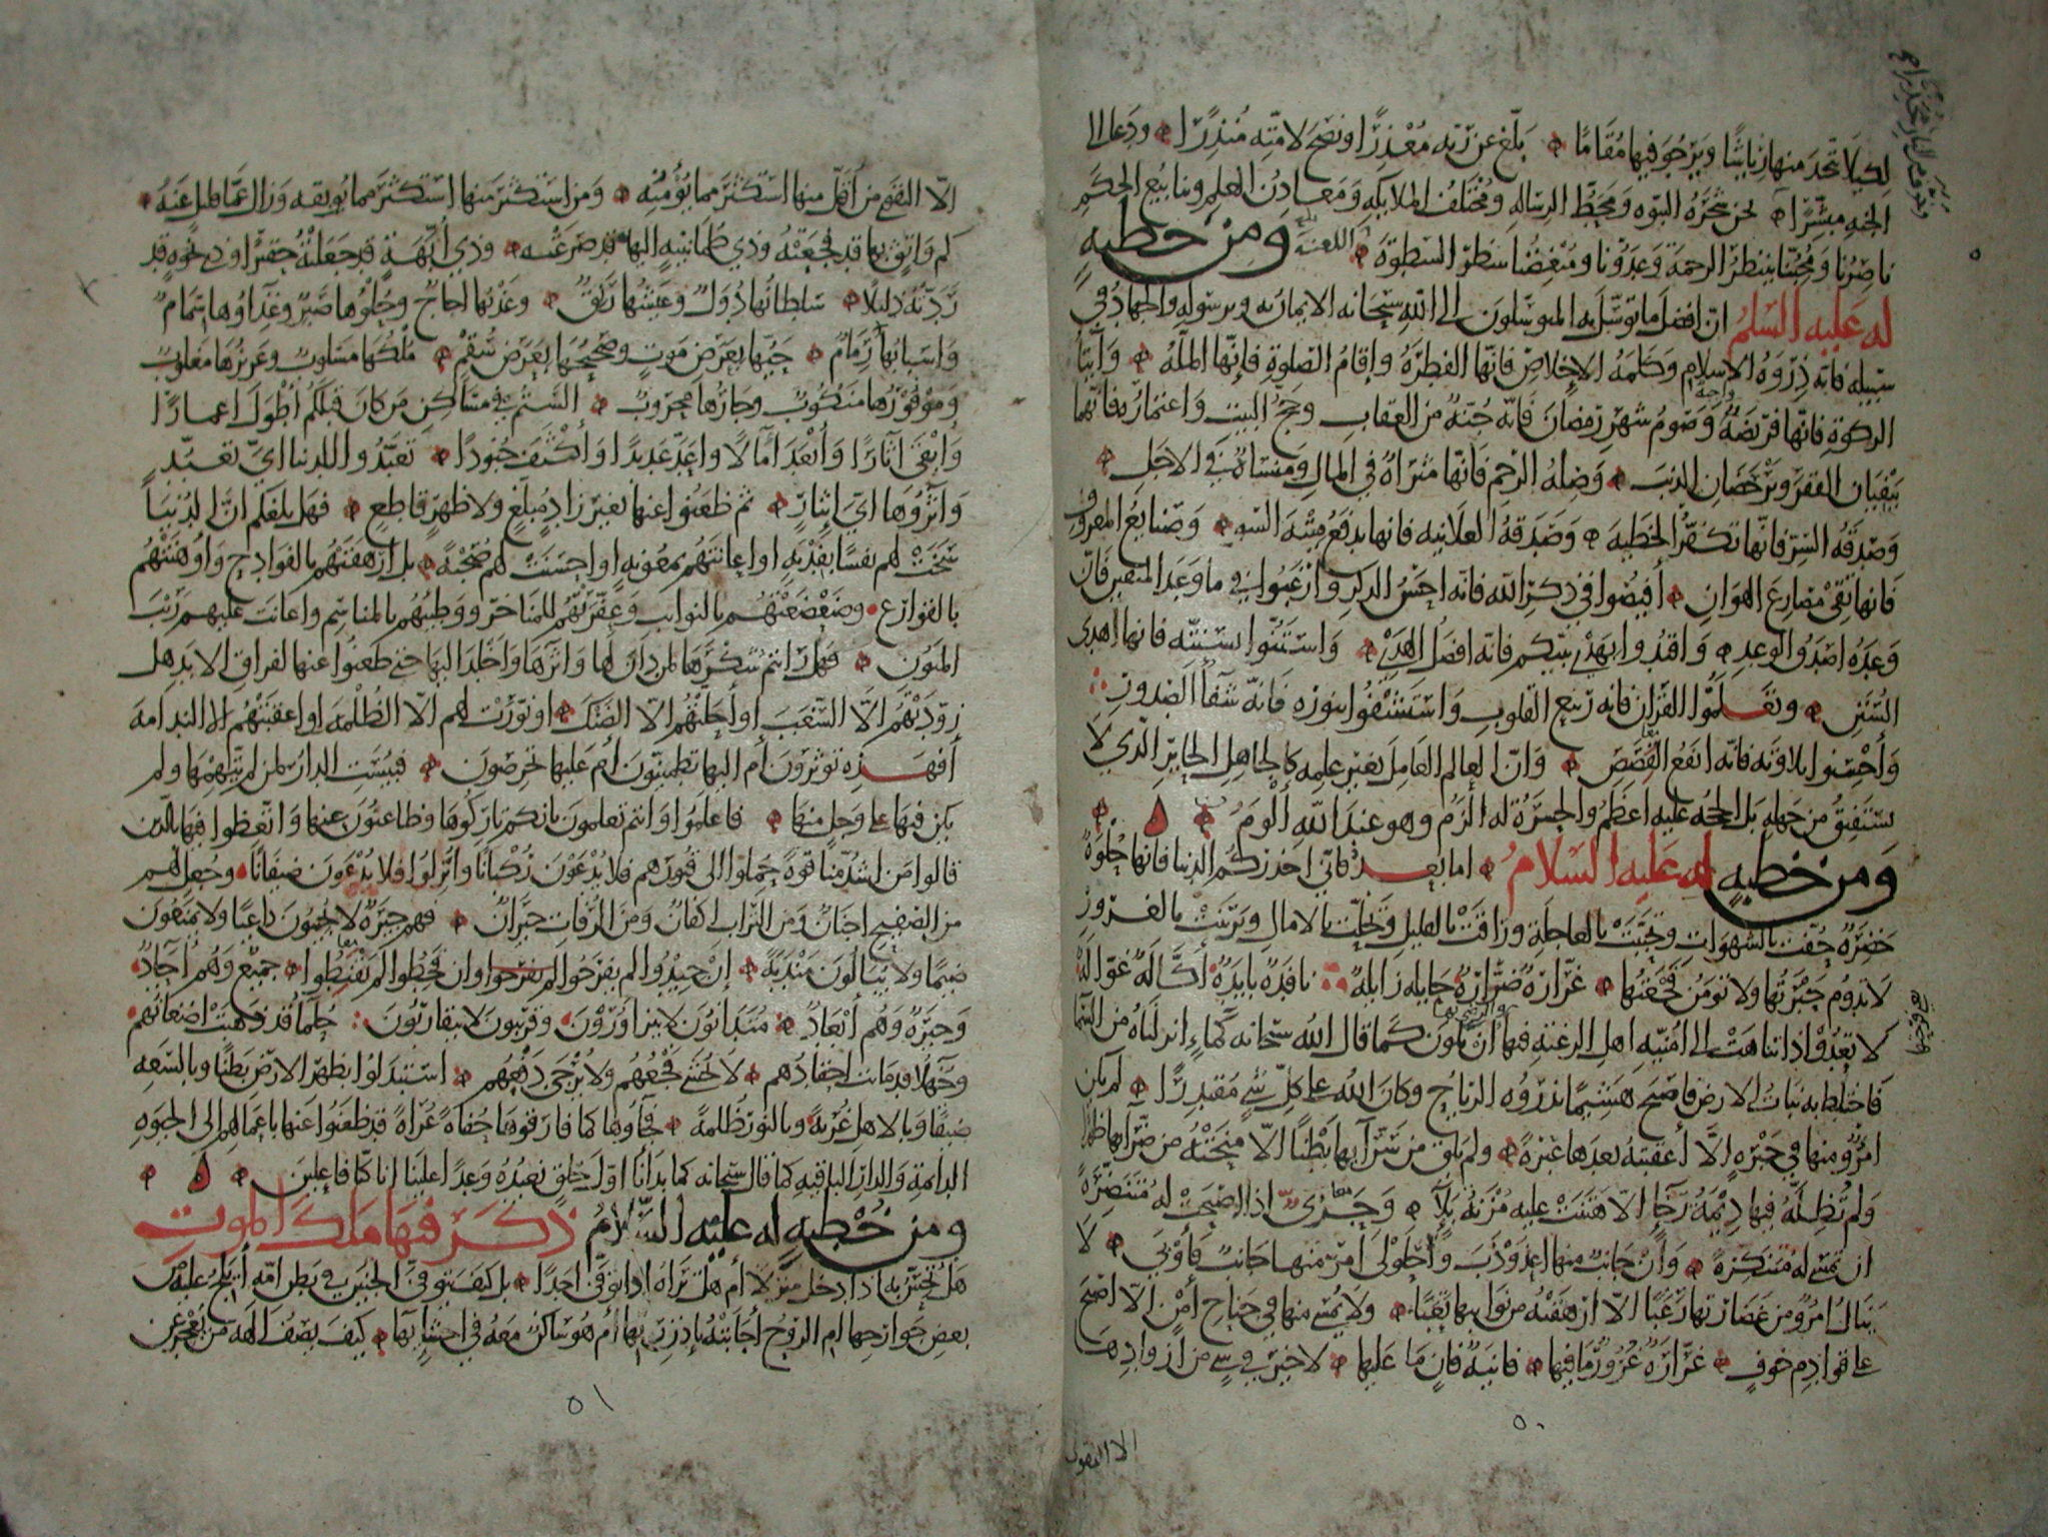 لكيلا يتخذ منها رياشا ويرجو فيها مقاما بلغ عن ربه معذرا ونصح لامته منذرا ودعا الى
الجنه مبشرا نحن شجره النبوه ومحط الرساله ومختلف الملايكه ومعادن العلم وينابيع الحكم
ناصرنا ومحبنا ينتظر الرحمة وعدونا ومبغضنا ينتظر السطوة ومن خطبه
له عليه السلم ان افضل ما توسل به المتوسلون الى الله سبحانه الايمان به وبرسوله والجهاد في
سبيله فانه ذروه الاسلام وكلمه الاخلاص فانها الفطره واقام الصلوة فانها المله وايتا
الزكوة فانها فريضه واجبه وصوم شهر رمضان فانه جنه من العقاب وحج البيت واعتماره فانهما
ينفيان الفقر ويرحضان الذنب وصله الرحم فانها مثراة في المال ومنساة في الاجل
وصدقه السر فانها تكفر الخطيه وصدقه العلانيه فانها تدفع ميته السو وصنايع المعروف
فانها تقي مصارع الهوان افيضوا في ذكر الله فانه احسن الذكر وارغبوا في ما وعد المتقين فان
وعده اصدق الوعد واقتدوا بهدي نبيكم فانه افضل الهدي واستنوا بسنته فانها اهدى
السنن وتعلموا القران فانه ربيع القلوب واستشفوا بنوره فانه شفا الصدور
واحسنوا تلاوته فانه انفع القصص وان العالم العامل بغير علمه كالجاهل الحاير الذي لا
يستفيق من جهله بل الحجه عليه اعظم والحسرة له الزم وهو عند الله الوم
ومن خطبه له عليه السلام اما بعد فاني احذركم الدنيا فانها حلوة
خضرة حفت بالشهوات وتحببت بالعاجلة وراقت بالقليل وتحلت بالامال وتزينت بالغرور
لا تدوم حبرتها ولا تومن فجعتها غرارة ضرارة حايله زايله نافدة بايدة اكالة غوالة
لا تعدو اذا تناهت الى امنيه اهل الرغبة فيها ان تكون كما قال الله سبحانه كماء انزلناه من السما
فاختلط به نبات الارض فاصبح هشيما تذروه الرياح وكان الله على كل شي مقتدرا لم يكن
امرؤ منها في حبرة الا اعقبته بعدها عبرة ولم يلق من سرايها بطنا الا منحته من ضرايها ظهرا
ولم تطله فيها ديمة رخاء الا هتنت عليه مزنة بلاء وحري اذا اصبحت له منتصرة
ان تمسي له متنكرة وان جانب منها اعذوذب واحلولى امر منها جانب فاوبى لا
ينال امرؤ من غضارتها رغبا الا ارهقته من نوايبها تعبا ولا يمسي منها في جناح امن الا اصبح
على قوادم خوف غرارة غرور ما فيها فانية فان ما عليها لا خير في شي من ازوادها
٥٠
الا التقوى
الا التقوى من اقل منها استكثر مما يؤمنه ومن استكثر منها استكثر مما يوبقه وزال عما قليل عنه
كم واثق بها قد فجعته وذي طمانينه اليها قد صرعته وذي ابهة قد جعلته حقيرا وذي نخوة قد
ردته ذليلا سلطانها دول وعيشها رنق وعذبها اجاج وحلوها صبر وغذاوها سمام
واسبابها رمام حيها بعرض موت وصحيحها بعرض سقم ملكها مسلوب وعزيزها مغلوب
وموفورها منكوب وجارها محروب الستم في مساكن من كان قبلكم اطول اعمارا
وابقى اثارا وابعد آمالا واعد عديدا واكثف جنودا تعبدوا للدنيا اي تعبد
وآثروها اي ايثار ثم ظعنوا عنها بغير زاد مبلغ ولا ظهر قاطع فهل بلغكم ان الدنيا
سخت لهم نفسا بفدية او اعانتهم بمعونه او احسنت لهم صحبة بل ارهقتهم بالفوادح واوهنتهم
بالقوارع وضعضعتهم بالنوايب وعفرتهم للمناخر ووطئتهم بالمناسم واعانت عليهم ريب
المنون فهل رايتم تنكرها لمن دان لها واثرها واخلد اليها حتى ظعنوا عنها لفراق الابد هل
زودتهم الا السغب او احلتهم الا الضنك او نورت لهم الا الظلمه او اعقبتهم الا الندامه
افهذه توثرون ام اليها تطمينون ام عليها تحرصون فبيست الدار لمن لم يتهمها ولم
يكن فيها على وجل منها فاعلموا وانتم تعلمون بانكم تاركوها وظاعنون عنها واتعظوا فيها بالذين
قالوا من اشد منا قوة حملوا الى قبورهم فلا يدعون ركبانا وانزلوا فلا يدعون ضيفانا وجعل لهم
من الصفيح اجنان ومن التراب اكفان ومن الرفات جيران فهم جيرة لا يجيبون داعيا ولا يمنعون
ضيما ولا يبالون مندبة ان جيدوا لم يفرحوا وان قحطوا لم يقنطوا جميع وهم آحاد
وجيرة وهم ابعاد متدانون لا يتزاورون وقريبون لا يتقاربون حلما قد ذهبت اضغانهم
وجهلا قد ماتت احقادهم لا يخشى فجعهم ولا يرجى دفعهم استبدلوا بظهر الارض بطنا وبالسعه
ضيقا وبالاهل غربة وبالنور ظلمة فجاوها كما فارقوها حفاة عراة قد ظعنوا عنها باعمالهم الى الحيوه
الدايمة والدار الباقيه كما قال سبحانه كما بدانا اول خلق نعيده وعدا علينا انا كنا فاعلين
ومن خطبه له عليه السلام ذكر فيها ملك الموت
هل تحس به اذا دخل منزلا ام هل تراه اذا توفى احدا بل كيف يتوفى الجنين في بطن امه ايلج عليه من
بعض جوارحها ام الروح اجابته باذن ربها ام هو ساكن معه في احشايها كيف يصف الهه من يعجز عن
٥١